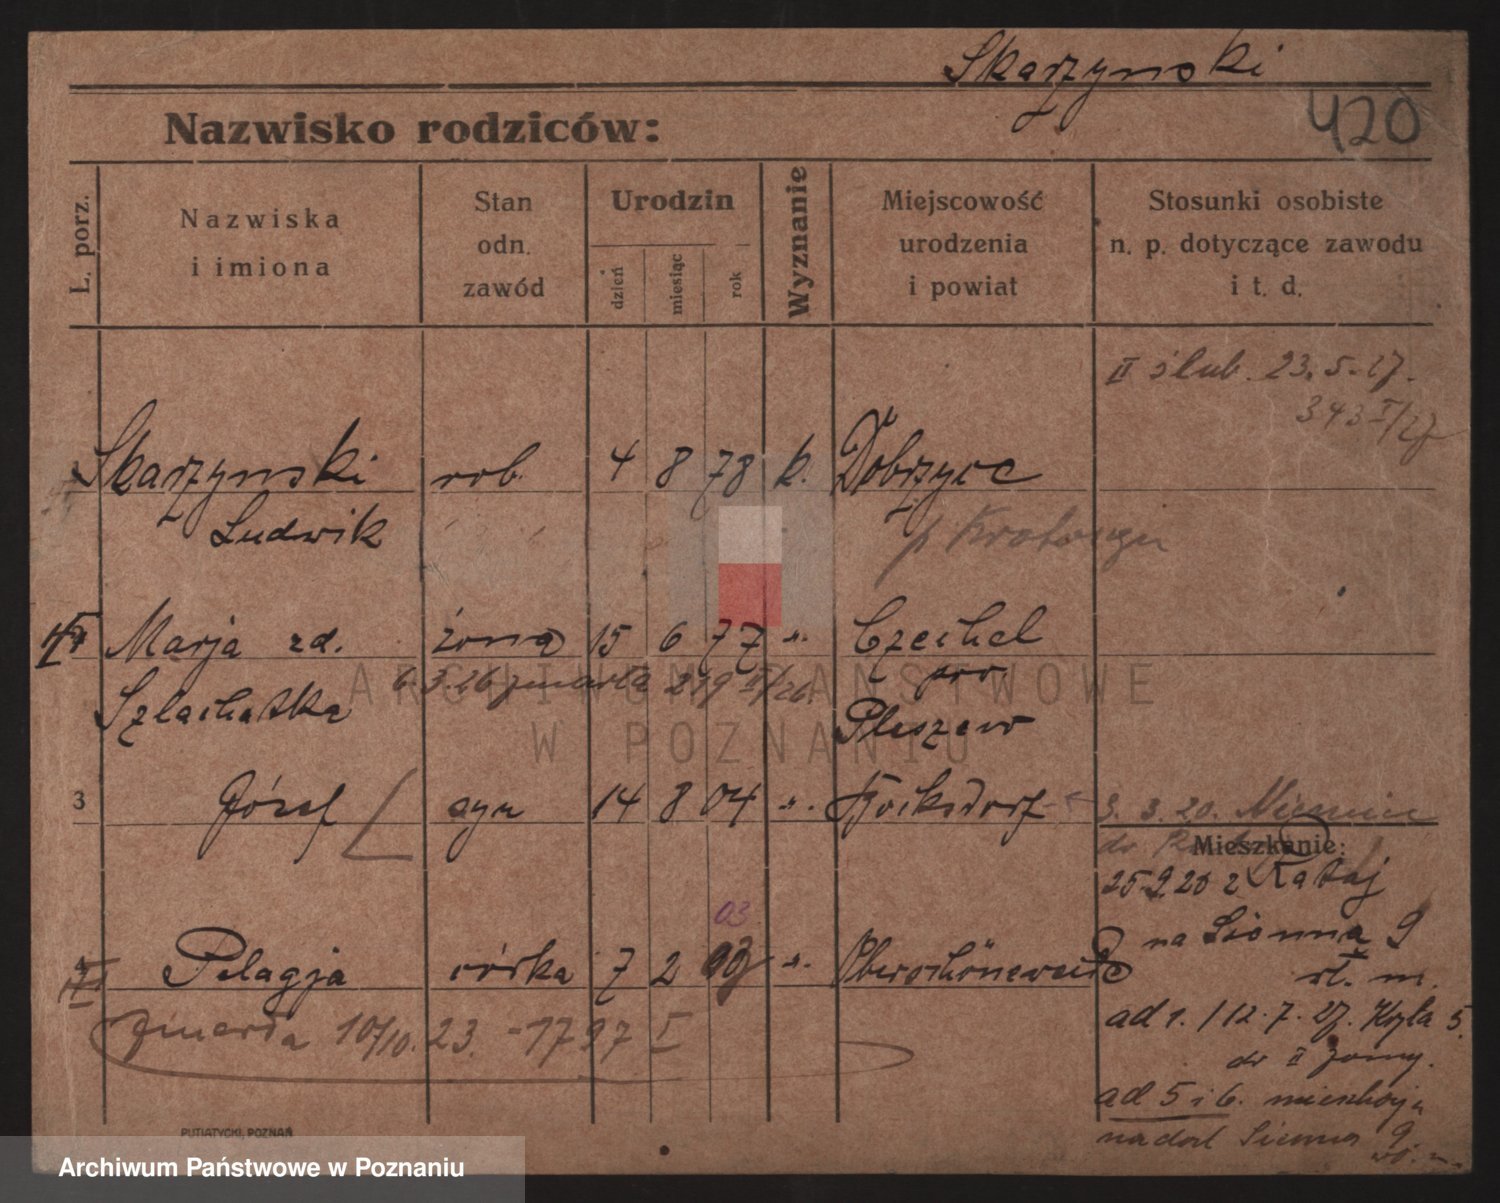 Skarzynski
420
Nazwisko rodziców:
L. porz.
Nazwiska
i imiona
Stan
odn.
zawód
Urodzin
dzień
miesiąc
rok
Wyznanie
Miejscowość
urodzenia
i powiat
Stosunki osobiste
n. p. dotyczące zawodu
i t. d.
II ślub. 23.5.27.
343 I/27
Skarzynski rob. 4 8 78 k. Dobrzyce
Ludwik p. Krotoszyn
Marja zd. żona 15 6 77 ". Czechel
6.3.26 zmarła 279 II/26.
pow.
Szlachatka Pleszew
3 Józef syn 14 8 04 ".
3.3.20. Niemiec
do
Mieszkanie:
25.9.20 z Rataj
03
Pelagja córka 7 2 03 ". Oberschöneweide
na Sienna 9
st. m.
zmarła 10/10.23. - 1797 I
ad 1. / 12.7.27. 5.
do II żony.
ad 5 i 6.
nadal Sienna 9.
PUTIATYCKI, POZNAŃ
ARCHIWUM PAŃSTWOWE
W POZNANIU
Archiwum Państwowe w Poznaniu